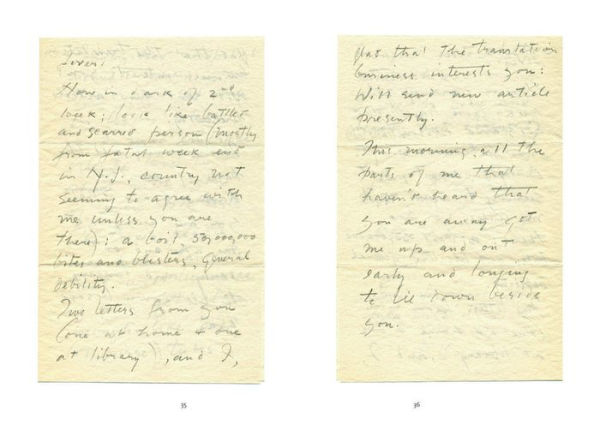 ever!
Now in dark of 2nd
week; look like battled
and scarred person (mostly
from fatal week end
in N.J., country not
seeming to agree with
me unless you are
there): a boil, 50,000,000
bites and blisters, general
debility.
Two letters from you
(one at home & one
at library), and I,
35
glad that the translation
business interests you:
Will send new article
presently.
This morning, all the
parts of me that
haven't heard that
you are away got
me up and out
early and longing
to lie down beside
you.
36